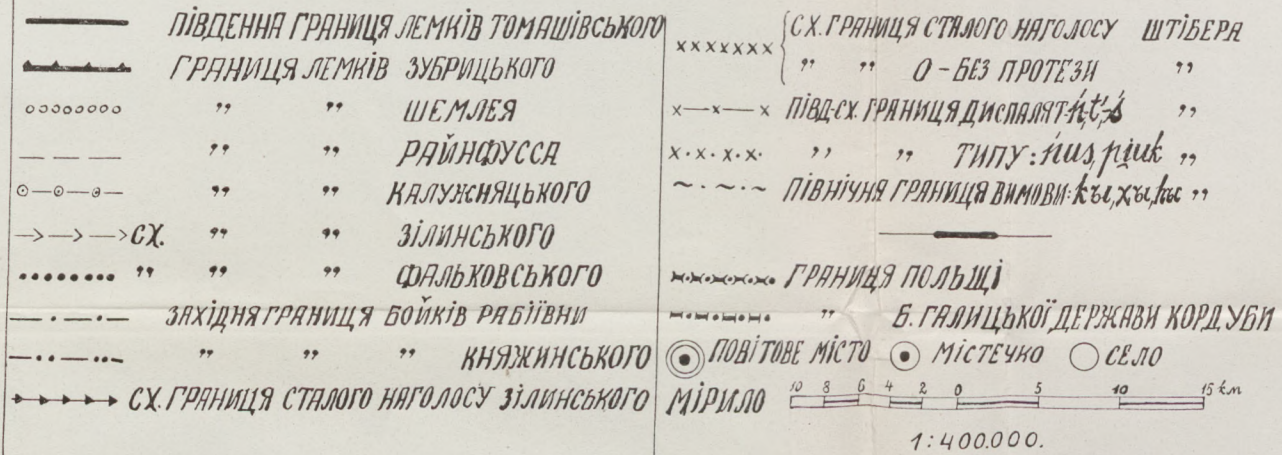 ПІВДЕННА ГРАНИЦЯ ЛЕМКІВ ТОМАШІВСЬКОГО
ГРАНИЦЯ ЛЕМКІВ ЗУБРИЦЬКОГО
” ” ШЕМЛЕЯ
” ” РАЙНФУССА
” ” КАЛУЖНЯЦЬКОГО
СХ. ” ” ЗІЛИНСЬКОГО
” ” ” ФАЛЬКОВСЬКОГО
ЗАХІДНЯ ГРАНИЦЯ БОЙКІВ РАБІЇВНИ
” ” ” КНЯЖИНСЬКОГО
СХ. ГРАНИЦЯ СТАЛОГО НАГОЛОСУ ЗІЛИНСЬКОГО
СХ. ГРАНИЦЯ СТАЛОГО НАГОЛОСУ ШТІБЕРА
” ” О – БЕЗ ПРОТЕЗИ ”
ПІВД-СХ. ГРАНИЦЯ ДИСПАЛЯТ-ń,t',-ś ”
” ” ТИПУ: ńus, pi̯uk ”
ПІВНІЧНА ГРАНИЦЯ ВИМОВИ: kы, xы, hы ”
ГРАНИЦЯ ПОЛЬЩІ
” Б. ГАЛИЦЬКОЇ ДЕРЖАВИ КОРДУБИ
ПОВІТОВЕ МІСТО МІСТЕЧКО СЕЛО
МІРИЛО 10 8 6 4 2 0 5 10 15 km
1:400.000.